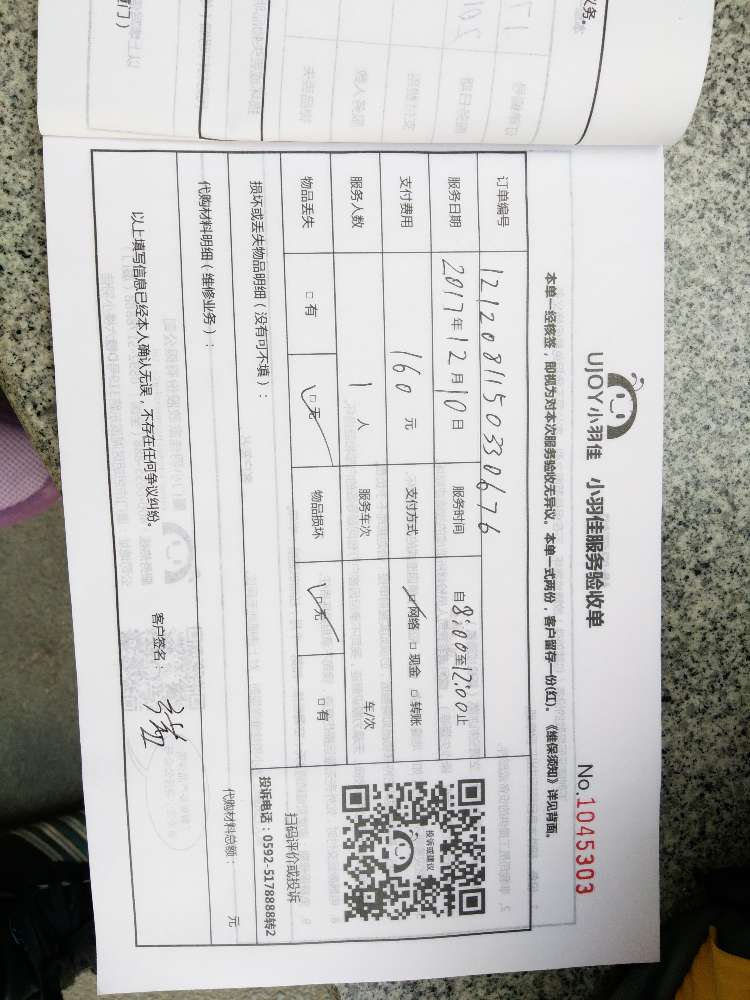 UJOY小羽佳 小羽佳服务验收单
No.1045303
本单一经核签，即视为对本次服务验收无异议。本单一式两份，客户留存一份(红)。《维保须知》详见背面。
订单编号 121208115033067 6
服务日期 2017年12月10日 服务时间 自8:00至12:00止
支付费用 160元 支付方式 □网络 □现金 □转账
服务人数 1人 服务车次 车/次
物品丢失 □有 □无 物品损坏 □无 □有
损坏或丢失物品明细（没有可不填）：
代购材料明细（维修业务）：
代购材料总额： 元
投诉或建议
扫码评价或投诉
投诉电话：0592-5178888转2
以上填写信息已经本人确认无误，不存在任何争议纠纷。
客户签名：